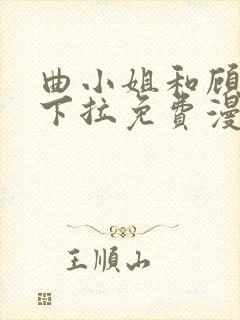 曲小姐和顾
下拉免費漫
王順山